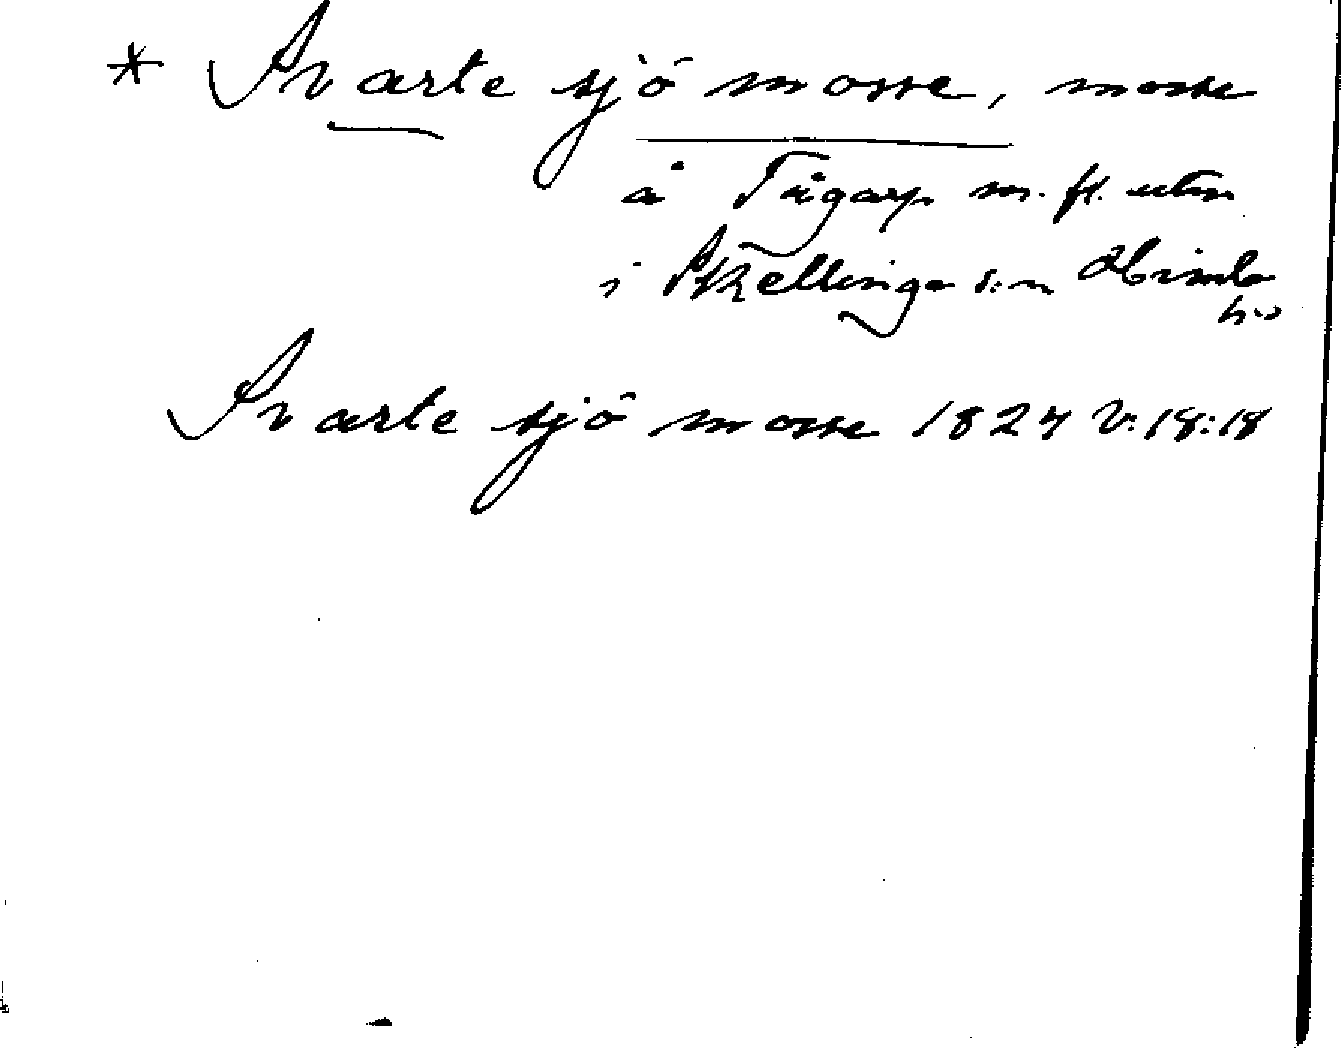 * Svarte sjö mosse, mosse
å Tågarp m. fl. utm
i Skellinge s:n Himle
hd
Svarte sjö mosse 1827 V:18:18